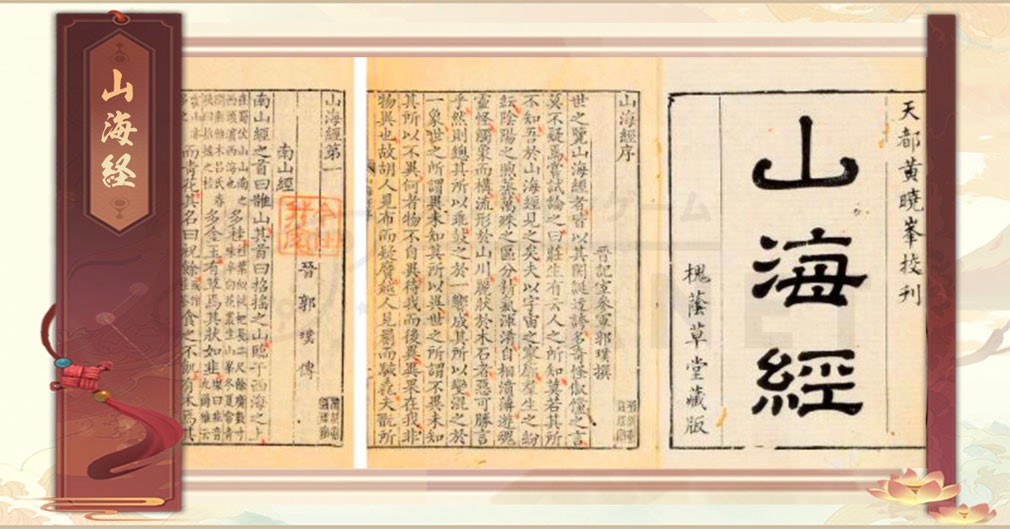 山海経
天都黄曉峯挍刊
山海經
槐蔭草堂藏版
山海經序
晉記室參軍郭璞撰
世之覽山海經者皆以其閎誕迂誇多奇怪俶儻之言
莫不疑焉嘗試論之曰莊生有云人之所知莫若其所
不知吾於山海經見之矣夫以宇宙之寥廓羣生之紛
紜陰陽之煦蒸萬殊之區分精氣渾淆自相濆薄遊魂
靈怪觸象而構流形於山川麗狀於木石者惡可勝言
乎然則總其所以乖鼓之於一響成其所以變混之於
一象世之所謂異未知其所以異世之所謂不異未知
其所以不異何者物不自異待我而後異異果在我非
物異也故胡人見布而疑黂越人見罽而駭毳夫翫所
山海經第一
晉 郭璞 傳
南山經
南山經之首曰䧿山其首曰招搖之山臨于西海之上
在蜀伏山山南之西頭濱西海也多桂桂葉似枇杷長二尺餘廣數寸味辛白花叢生山峯冬夏常青
間無雜木呂氏春秋曰招搖之桂多金玉有草焉其狀如韭
而青花其名曰祝餘食之不飢有木焉其